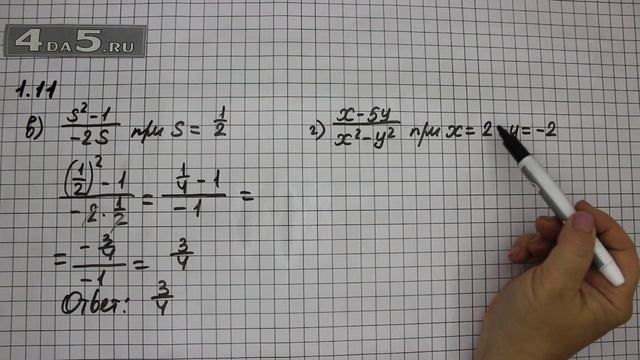 4DA5.RU
1.11
в) (s² - 1)/(-2s) при s = 1/2
((1/2)² - 1)/(-2 · 1/2) = (1/4 - 1)/(-1) =
= (-3/4)/(-1) = 3/4
Ответ: 3/4
г) (x - 5y)/(x² - y²) при x = 2 y = -2